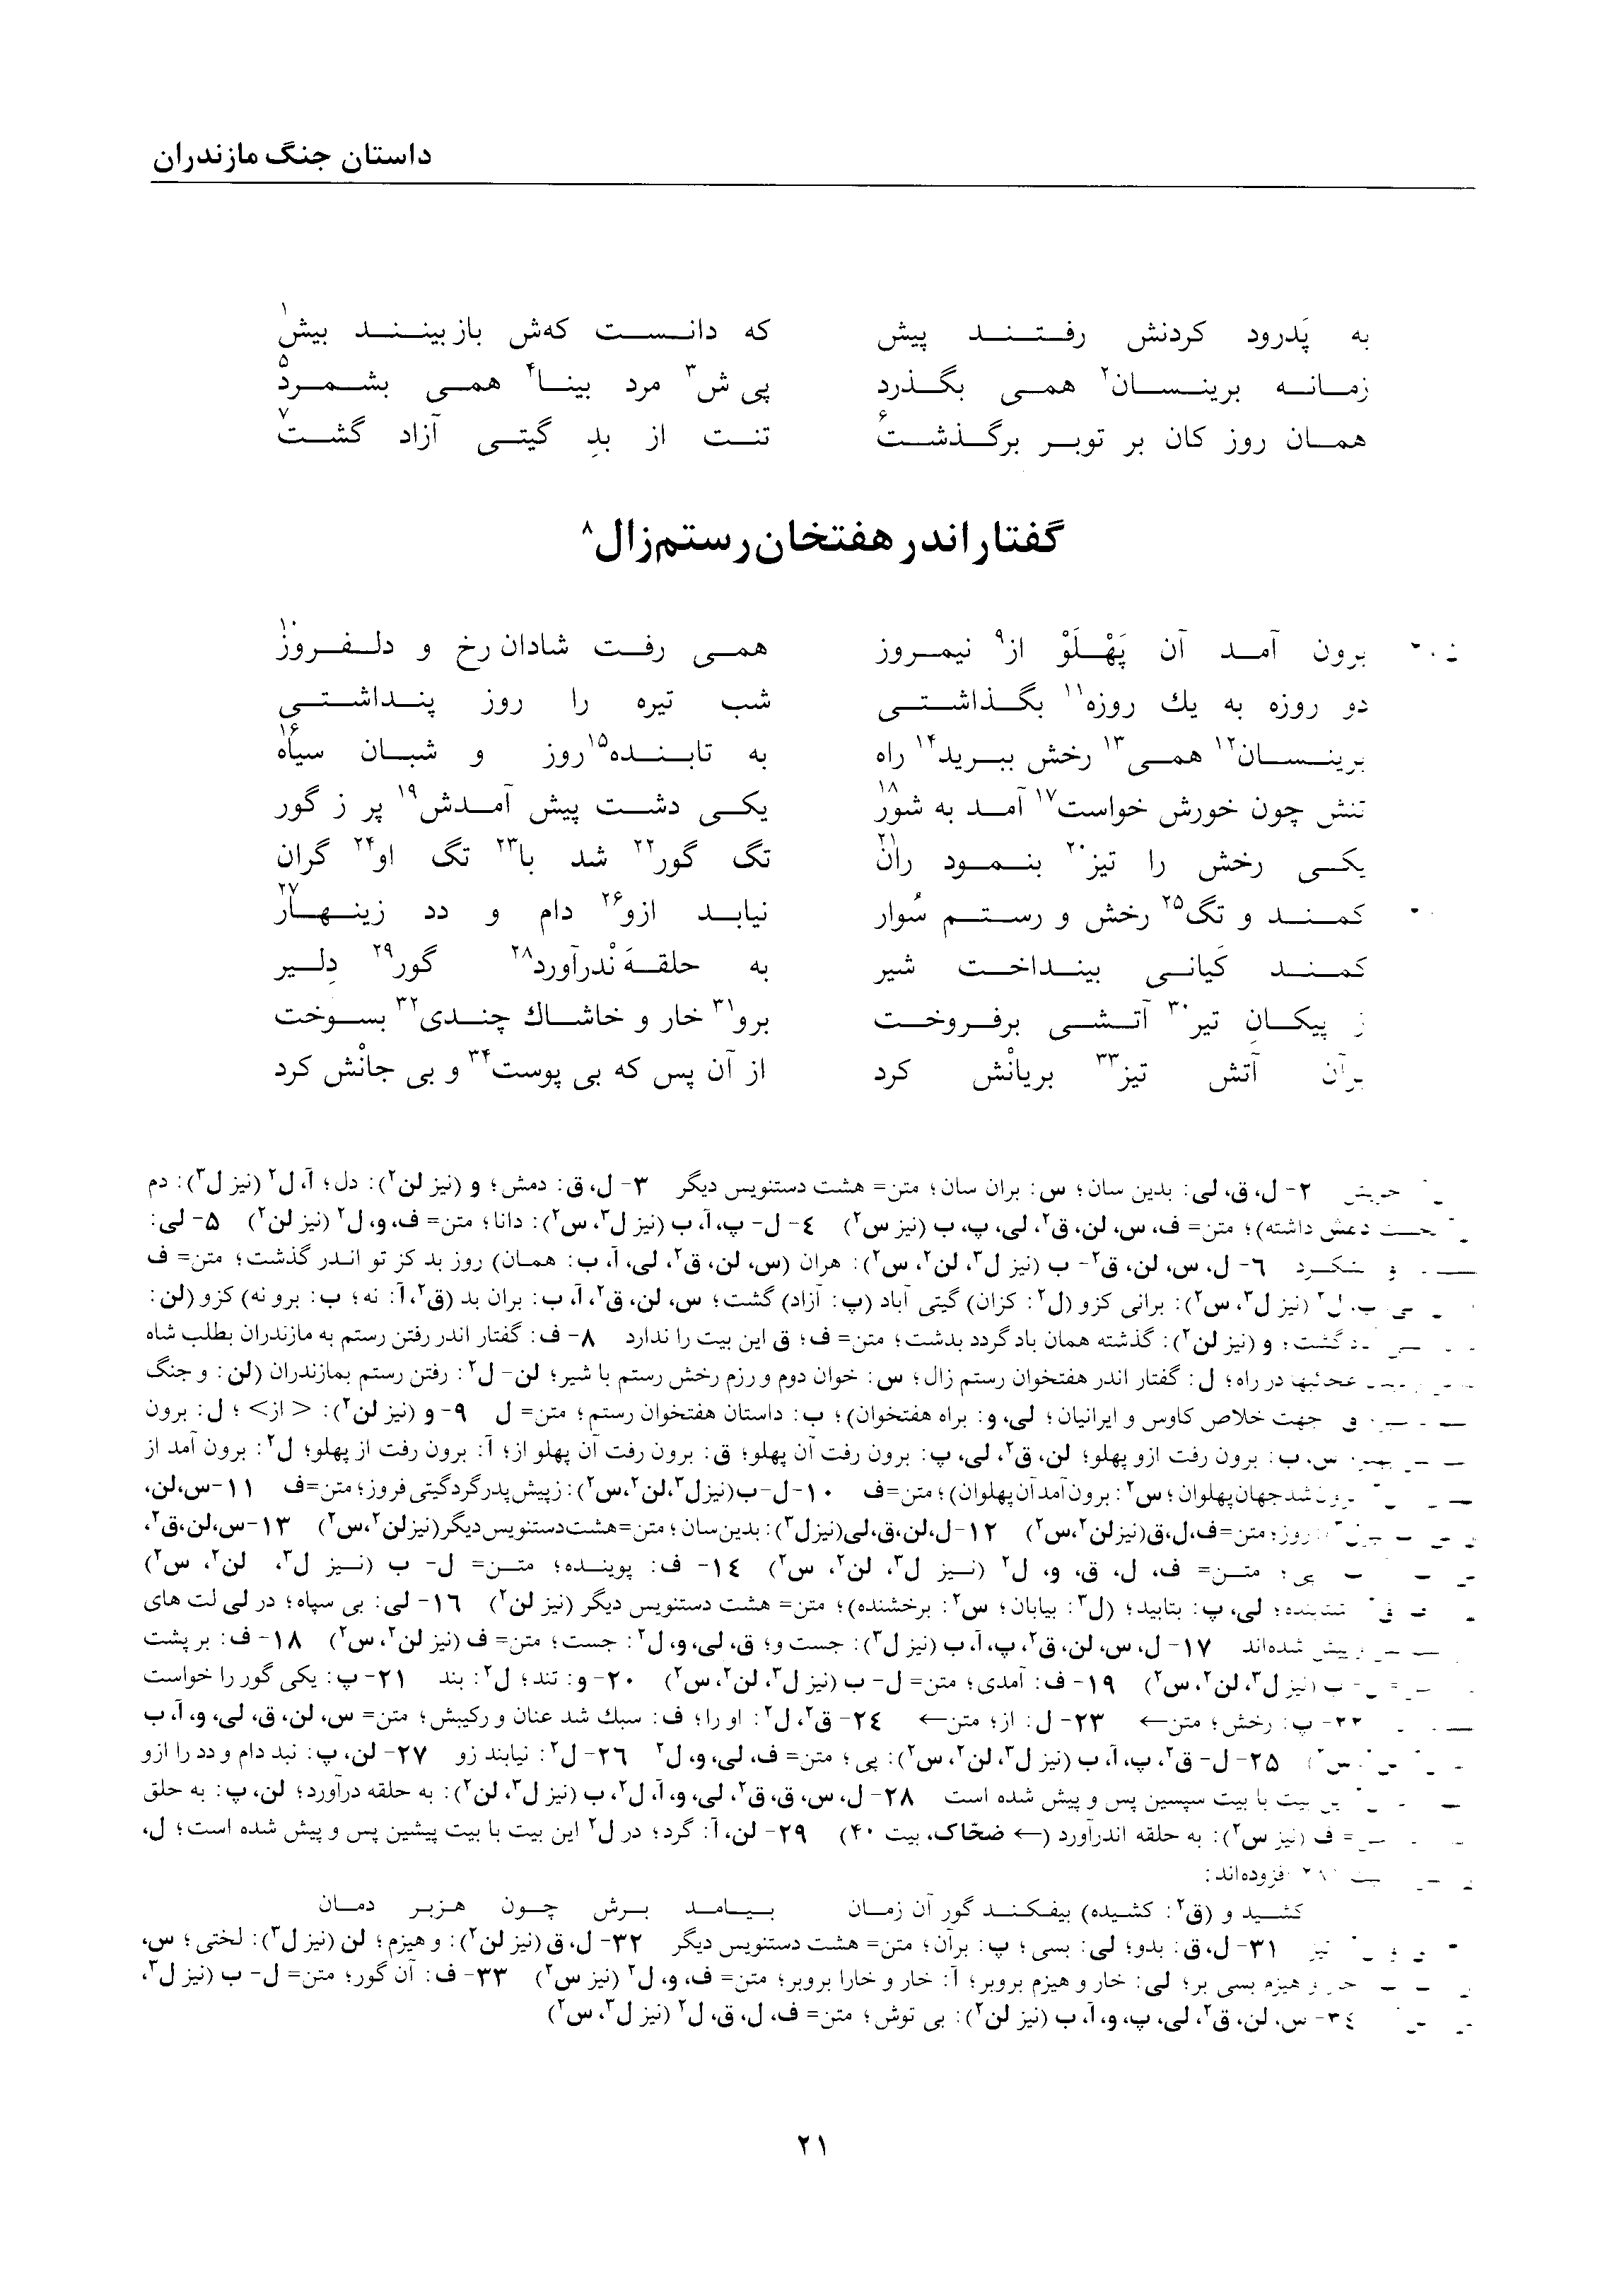 داستان جنگ مازندران
به پَدرود کردنش رفتند پیش که دانست که‌ش باز بینند بیش۱
زمانه برینسان۲ همی بگذرد پی ش۳ مرد بینا۴ همی بشمرد۵
همان روز کان بر تو بر برگذشت۶ تنت از بدِ گیتی آزاد گشت۷
گفتار اندر هفتخان رستم زال۸
برون آمد آن پَهْلَوْ از۹ نیمروز همی رفت شادان رخ و دلفروز۱۰
دو روزه به یك روزه۱۱ بگذاشتی شب تیره را روز پنداشتی
برینسان۱۲ همی۱۳ رخش ببرید۱۴ راه به تابنده۱۵ روز و شبان سیاه۱۶
تنش چون خورش خواست۱۷ آمد به شور۱۸ یکی دشت پیش آمدش۱۹ پر ز گور
یکی رخش را تیز۲۰ بنمود ران۲۱ تگ گور۲۲ شد با۲۳ تگ او۲۴ گران
کمند و تگ۲۵ رخش و رستم سُوار نیابد ازو۲۶ دام و دد زینهار۲۷
کمند کَیانی بینداخت شیر به حلقهَ نْدرآورد۲۸ گور۲۹ دلیر
ز پیکانِ تیر۳۰ آتشی برفروخت برو۳۱ خار و خاشاك چندی۳۲ بسوخت
بران آتش تیز۳۳ بریانْش کرد از آن پس که بی پوست۳۴ و بی جانْش کرد
۲- ل، ق، لی: بدین سان؛ س: بران سان؛ متن= هشت دستنویس دیگر ۳- ل، ق: دمش؛ و (نیز لن۲): دل؛ آ، ل۲ (نیز ل۳): دم
دعش داشته)؛ متن= ف، س، لن، ق۲، لی، پ، ب (نیز س۲) ۴- ل- پ، آ، ب (نیز ل۳، س۲): دانا؛ متن= ف، و، ل۲ (نیز لن۲) ۵- لی:
۶- ل، س، لن، ق۲- ب (نیز ل۳، لن۲، س۲): هران (س، لن، ق۲، لی، آ، ب: همان) روز بد کز تو اندر گذشت؛ متن= ف
ل۲ (نیز ل۳، س۲): برانی کزو (ل۲: کزان) گیتی آباد (پ: آزاد) گشت؛ س، لن، ق۲، آ، ب: بران بد (ق۲، آ: نه؛ ب: برو نه) کزو (لن:
گشت؛ و (نیز لن۲): گذشته همان باد گردد بدشت؛ متن= ف؛ ق این بیت را ندارد ۸- ف: گفتار اندر رفتن رستم به مازندران بطلب شاه
در راه؛ ل: گفتار اندر هفتخوان رستم زال؛ س: خوان دوم و رزم رخش رستم با شیر؛ لن- ل۲: رفتن رستم بمازندران (لن: و جنگ
جهت خلاص کاوس و ایرانیان؛ لی، و: براه هفتخوان)؛ ب: داستان هفتخوان رستم؛ متن= ل ۹- و (نیز لن۲): < از> ؛ ل: برون
س، ب: برون رفت ازو پهلو؛ لن، ق۲، لی، پ: برون رفت آن پهلو؛ ق: برون رفت آن پهلو از؛ آ: برون رفت از پهلو؛ ل۲: برون آمد از
شد جهان پهلوان؛ س۲: برون آمد آن پهلوان)؛ متن=ف ۱۰- ل- ب(نیز ل۳، لن۲، س۲): ز پیش پدر گرد گیتی فروز؛ متن=ف ۱۱- س، لن،
روز؛ متن=ف، ل، ق(نیز لن۲، س۲) ۱۲- ل، لن، ق، لی(نیز ل۳): بدین سان؛ متن=هشت دستنویس دیگر(نیز لن۲، س۲) ۱۳- س، لن، ق۲،
پی؛ متن= ف، ل، ق، و، ل۲ (نیز ل۳، لن۲، س۲) ۱۴- ف: پوینده؛ متن= ل- ب (نیز ل۳، لن۲، س۲)
لی، پ: بتابید؛ (ل۳: بیابان؛ س۲: برخشنده)؛ متن= هشت دستنویس دیگر (نیز لن۲) ۱۶- لی: بی سپاه؛ در لی لت های
پیش شده‌اند ۱۷- ل، س، لن، ق۲، پ، آ، ب (نیز ل۳): جست؛ ق، لی، و، ل۲: جست و؛ متن= ف (نیز لن۲، س۲) ۱۸- ف: بر پشت
ب (نیز ل۳، لن۲، س۲) ۱۹- ف: آمدی؛ متن= ل- ب (نیز ل۳، لن۲، س۲) ۲۰- و: تند؛ ل۲: بند ۲۱- پ: یکی گور را خواست
۲۲- پ: رخش؛ متن← ۲۳- ل: از؛ متن← ۲۴- ق۲، ل۲: او را؛ ف: سبك شد عنان و رکیبش؛ متن= س، لن، ق، لی، و، آ، ب
۲۵- ل- ق۲، پ، آ، ب (نیز ل۳، لن۲، س۲): پی؛ متن= ف، لی، و، ل۲ ۲۶- ل۲: نیابند زو ۲۷- لن، پ: نبد دام و دد را ازو
بیت با بیت سپسین پس و پیش شده است ۲۸- ل، س، ق، ق۲، لی، و، آ، ل۲، ب (نیز ل۳، لن۲): به حلقه درآورد؛ لن، پ: به حلق
= ف (نیز س۲): به حلقه اندرآورد (← ضحّاک، بیت ۴۰) ۲۹- لن، آ: گرد؛ در ل۲ این بیت با بیت پیشین پس و پیش شده است؛ ل،
افزوده‌اند:
کشید و (ق۲: کشیده) بیفکند گور آن زمان بیامد برش چون هزبر دمان
نیز ۳۱- ل، ق: بدو؛ لی: بسی؛ پ: برآن؛ متن= هشت دستنویس دیگر ۳۲- ل، ق(نیز لن۲): و هیزم؛ لن (نیز ل۳): لختی؛ س،
و هیزم بسی بر؛ لی: خار و هیزم بروبر؛ آ: خار و خارا بروبر؛ متن= ف، و، ل۲ (نیز س۲) ۳۳- ف: آن گور؛ متن= ل- ب (نیز ل۳،
۳۴- س، لن، ق۲، لی، پ، و، آ، ب (نیز لن۲): بی توش؛ متن= ف، ل، ق، ل۲ (نیز ل۳، س۲)
۲۱